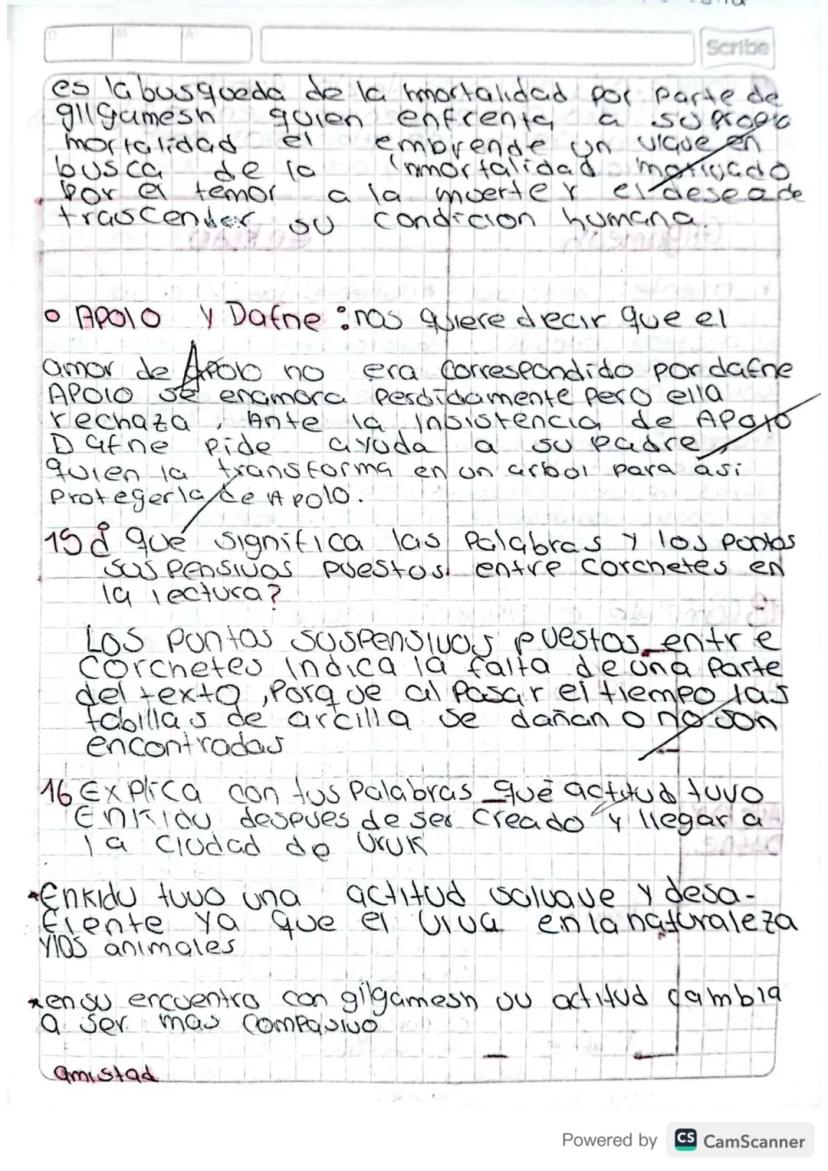 Scribe
es la busqueda de la Inmortalidad por parte de
gilgamesh quien enfrenta a su propio
mortalidad el emprende un viaje en
busca de la Inmortalidad motivado
por el temor a la muerte y el deseo de
trascender su condicion humana.
Apolo y Dafne: nos quiere decir que el
amor de Apolo no era correspondido por dafne
APOLO se enamora perdidamente pero ella
rechaza, Ante la Insistencia de Apolo
Dafne pide ayuda a su padre,
quien la transforma en un arbol para asi
protegerla de Apolo.
15 ¿que significa las palabras y los pontos
suspensivos puestos entre corchetes en
la lectura?
Los puntos suspensivos puestos entre
corchetes Indica la falta de una parte
del texto, porque al pasar el tiempo las
tabillas de arcilla se dañan o no son
encontradas
16 Explica con tus palabras que actitud tuvo
Enkidu despues de ser creado y llegar a
la ciudad de Uruk
Enkidu tuvo una actitud salvaje y desa-
fiente ya que el viva en la naturaleza
y los animales
en su encuentro con gilgamesh su actitud cambia
a ser mas compasivo
amistad
Powered by CS CamScanner